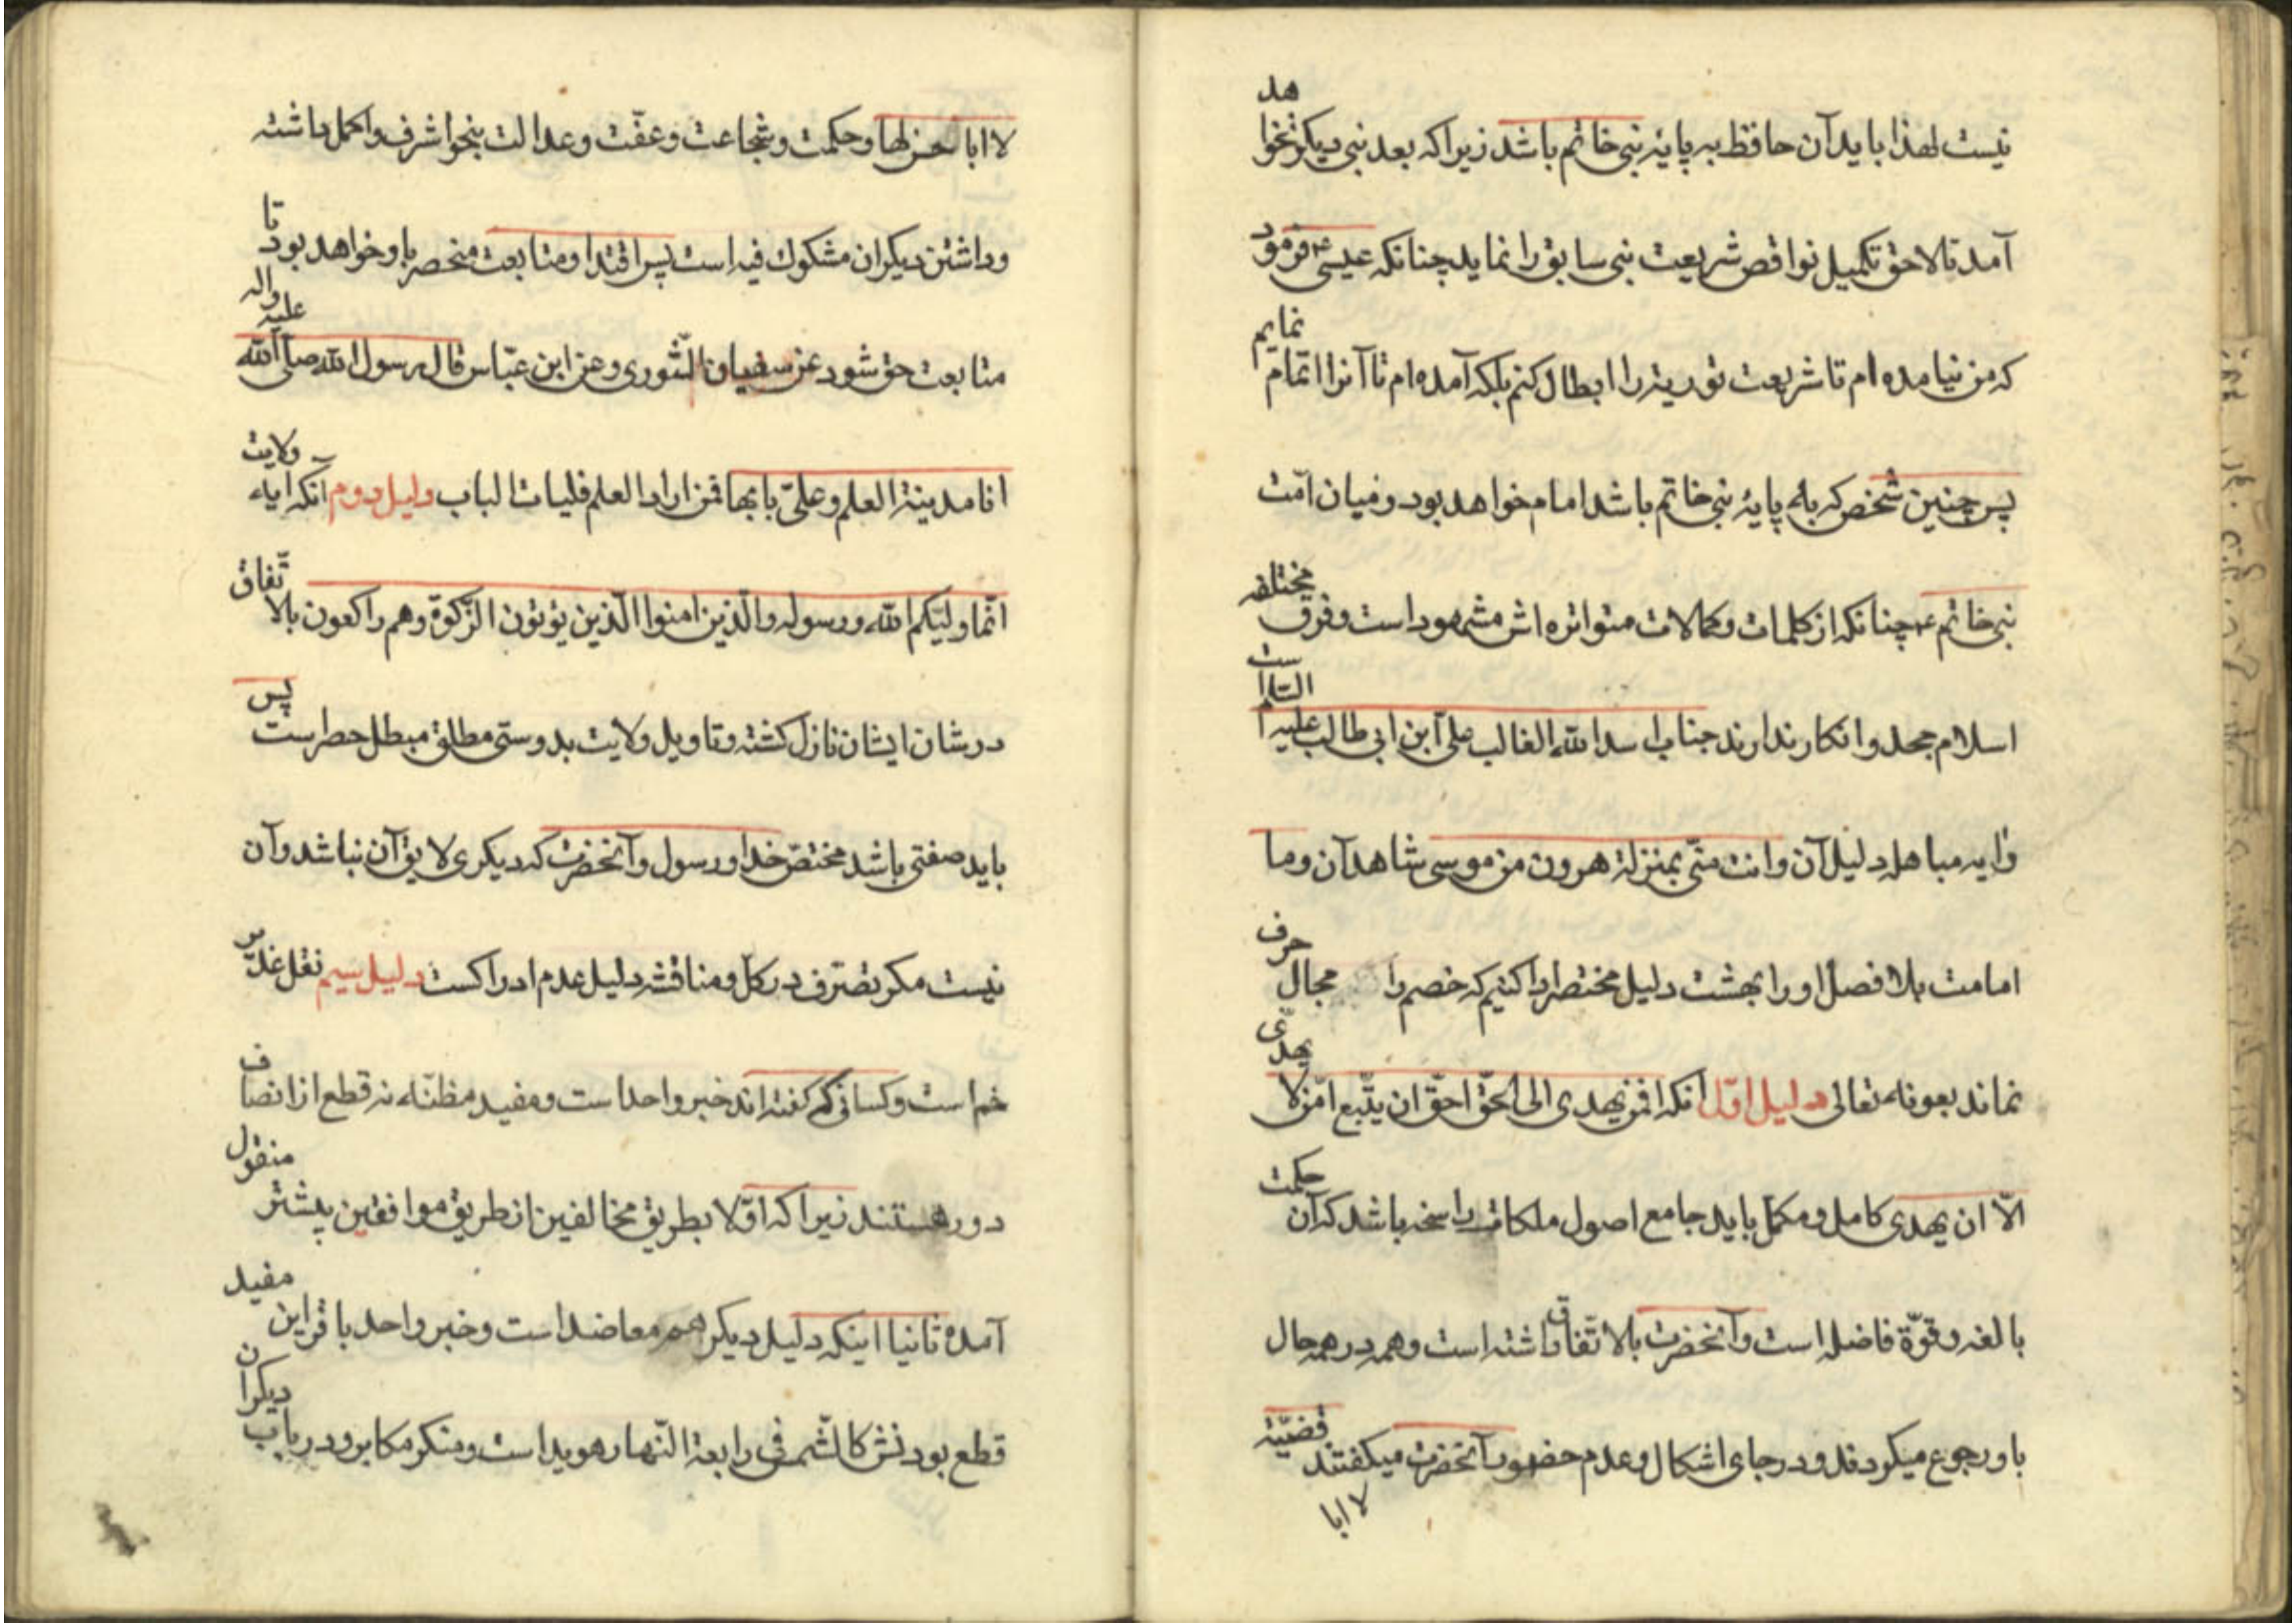 نیست لهذا باید آن حافظ به پایهٔ نبی خاتم باشد زیرا که بعد نبی دیگر نخواهد
آمد تا لاحق تکمیل نواقص شریعت نبی سابق را نماید چنانکه عیسی ع فرمود
که من نیامده ام تا شریعت توریة را ابطال کنم بلکه آمده ام تا آنرا اتمام نمایم
پس چنین شخص که با پایهٔ نبی خاتم باشد امام خواهد بود و میان امّت
نبی خاتم ع چنانکه از کلمات و کمالات متواتره اش مشهود است و فرق مختلفه
اسلام جحد و انکار ندارند جناب اسد الله الغالب علی ابن ابی طالب علیه السّلام است
وایه مباهله دلیل آن و انت منّی بمنزلة هرون من موسی شاهد آن و ما
امامت بلا فصل او را بهشت دلیل مختصر ادا کنیم که خصم را مجال حرف
نماند بعونه تعالی دلیل اوّل انکه افمن یهدی الی الحقّ احقّ ان یتّبع امّن لا یهدّی
الّا ان یهدی کامل و مکمّل باید جامع اصول ملکات راسخه باشد که آن حکمت
بالغه و قوّة فاضله است و آنحضرت بالاتّفاق داشته است و همه در همه حال
باو رجوع میکردند و در جای اشکال و عدم حضور آنحضرت میکفتند قضیّة
لا ابا
لا ابا حسن لها و حکمت و شجاعت و عفّت و عدالت بنحو اشرف و اکمل داشته
و داشتن دیکران مشکوك فیه است پس اقتدا و متابعت منحصر باو خواهد بود تا
متابعت حق شود عن سفیان الثّوری و عن ابن عبّاس قال رسول الله صلّی الله علیه واله
انا مدینة العلم و علیّ بابها فمن اراد العلم فلیات الباب دلیل دوم آنکه ایهٔ ولایت
انّما ولیّکم الله و رسوله والّذین امنوا الّذین یؤتون الزّکوة وهم راکعون بالاتّفاق
در شان ایشان نازل کشته و تاویل ولایت بدوستی مطلق مبطل حصر است پس
باید صفتی باشد مختصّ خدا و رسول و آنحضرت که دیکری لایق آن نباشد و آن
نیست مکر تصرّف در کلّ و مناقشه دلیل عدم ادراکست دلیل سیم نقل غدیر
خم است و کسانی که کفته اند خبر واحد است و مفید مظنّه نه قطع از انصاف
دور هستند زیرا که اوّلا بطریق مخالفین از طریق موافقین پیشتر منقول
آمده ثانیا اینکه دلیل دیکر هم معاضد است و خبر واحد با قراین مفید
قطع بودنش کالشّمس فی رابعة النّهار هویداست و منکر مکابر و در باب دیکران